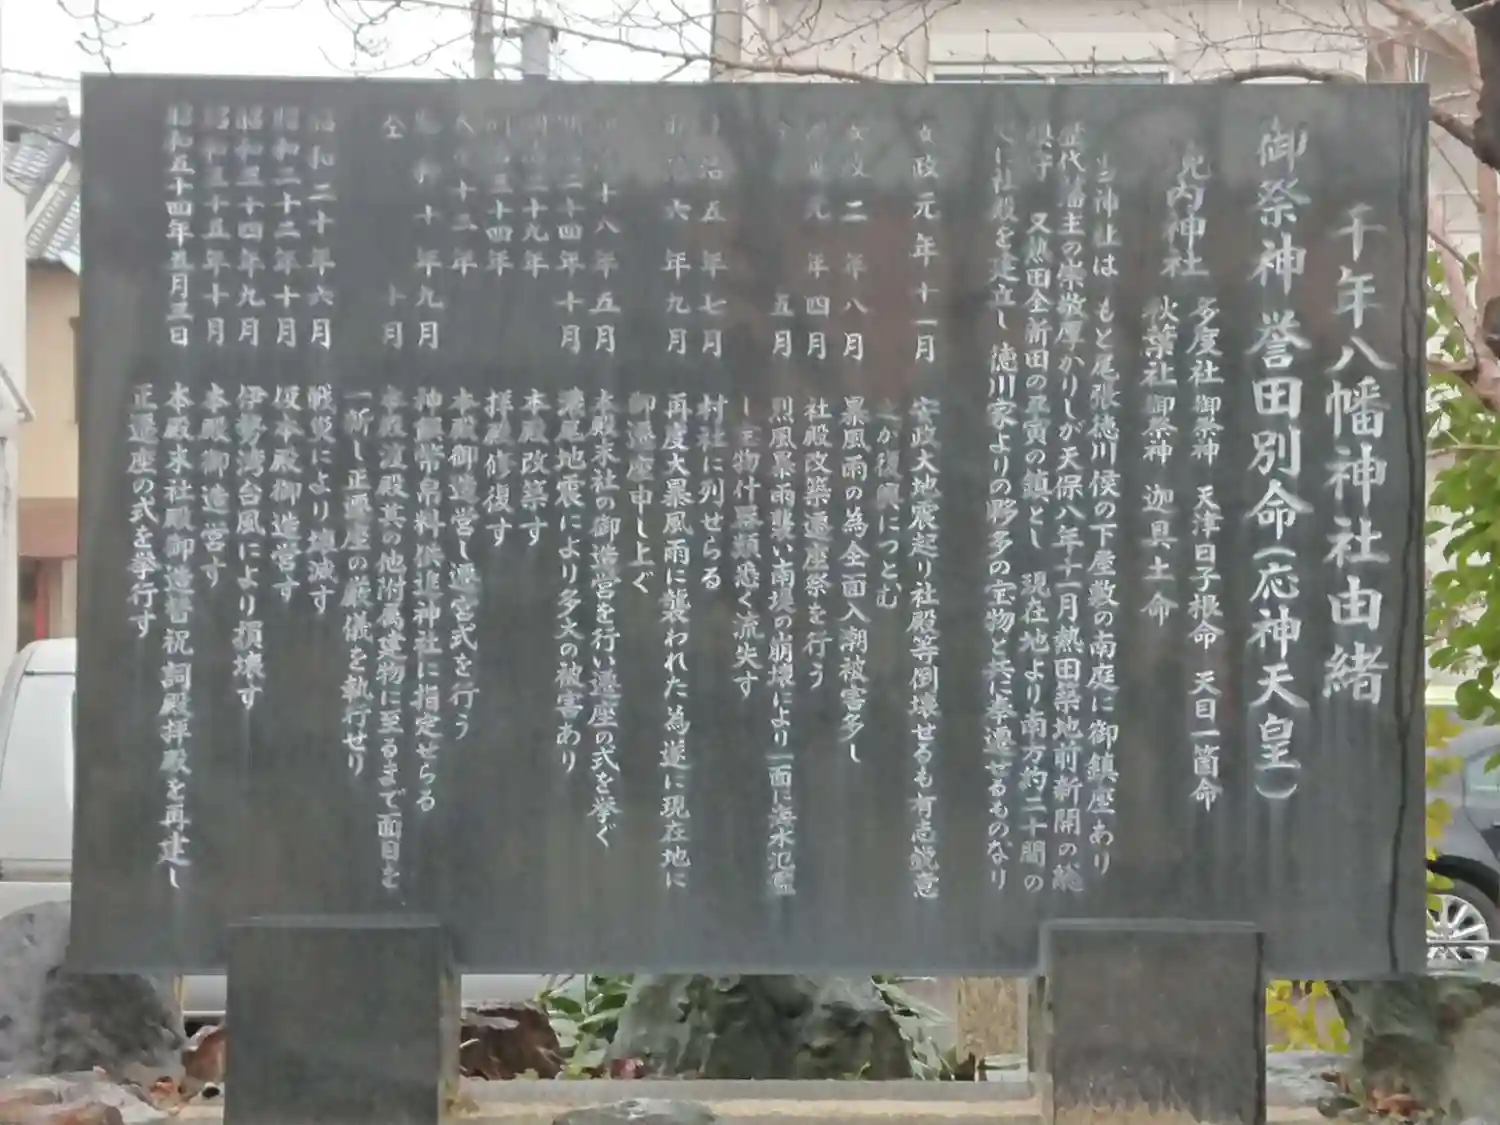 千年八幡神社由緒
御祭神 誉田別命(応神天皇)
境内神社 多度社御祭神 天津日子根命 天目一箇命
秋葉社御祭神 迦具土命
当神社は もと尾張徳川侯の下屋敷の南庭に御鎮座あり
歴代藩主の崇敬厚かりしが天保八年十一月熱田築地前新開の総
鎮守 又熱田全新田の丑寅の鎮とし 現在地より南方約二十間の
に社殿を建立し 徳川家よりの夥多の宝物と共に奉遷せるものなり
安政元年十一月 安政大地震起り社殿等倒壊せるも有志鋭意
之が復興につとむ
安政二年八月 暴風雨の為全面入潮被害多し
年四月 社殿改築遷座祭を行う
五月 烈風暴雨襲い南堤の崩壊により一面に海水氾濫
し宝物什器類悉く流失す
明治五年七月 村社に列せらる
明治六年九月 再度大暴風雨に襲われた為遂に現在地に
御遷座申し上ぐ
十八年五月 本殿末社の御造営を行い遷座の式を挙ぐ
二十四年十月 濃尾地震により多大の被害あり
三十九年 本殿改築す
三十四年 拝殿修復す
大正十二年 本殿御造営し遷宮式を行う
昭和十年九月 神饌幣帛料供進神社に指定せらる
仝 十月 本殿渡殿其の他附属建物に至るまで面目を
一新し正遷座の厳儀を執行せり
昭和二十年六月 戦災により壊滅す
昭和二十二年十月 仮本殿御造営す
昭和三十四年九月 伊勢湾台風により損壊す
昭和三十五年十月 本殿御造営す
昭和五十四年五月三日 本殿末社殿御造替祝詞殿拝殿を再建し
正遷座の式を挙行す